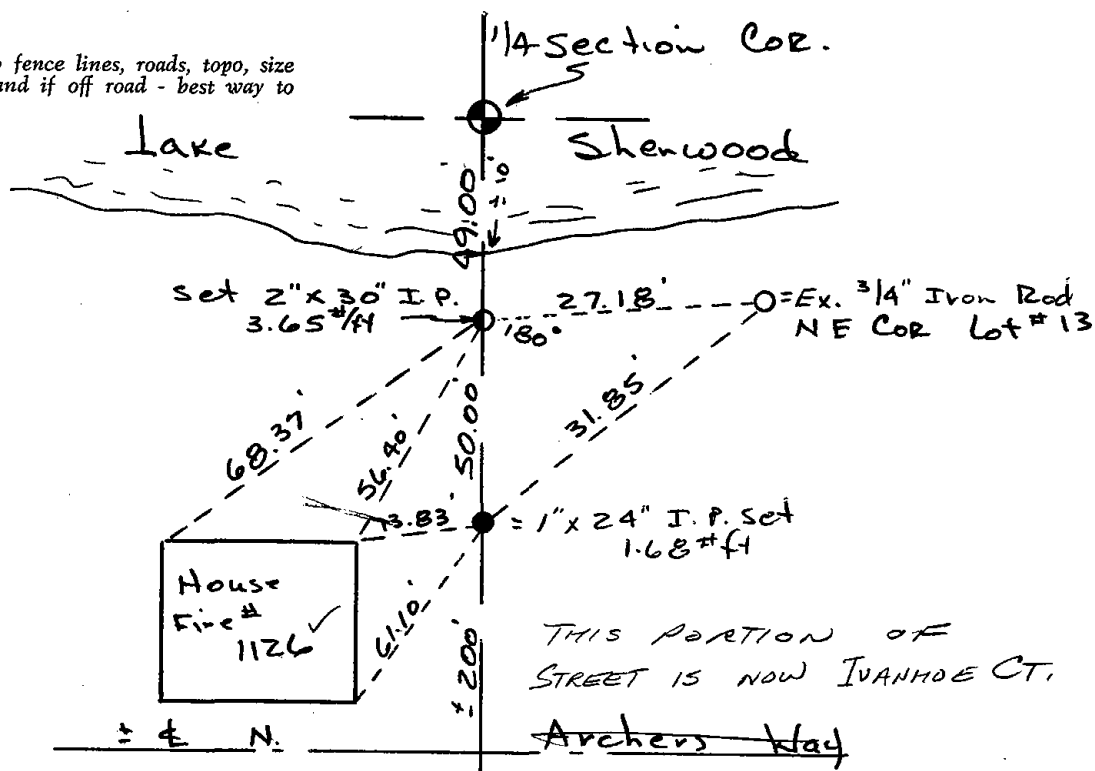 fence lines, roads, topo, size
and if off road - best way to
1/4 Section Cor.
Lake Sherwood
49.00'
± 10'
Set 2" x 30" I.P.
3.65#/ft
27.18'
180°
= Ex. 3/4" Iron Rod
NE Cor Lot #13
68.37'
56.40'
50.00'
31.85'
13.83'
= 1" x 24" I.P. Set
1.68#ft
House
Fire#
1126 ✓
61.10'
± 200'
THIS PORTION OF
STREET IS NOW IVANHOE CT.
± ℄ N. Archers Way